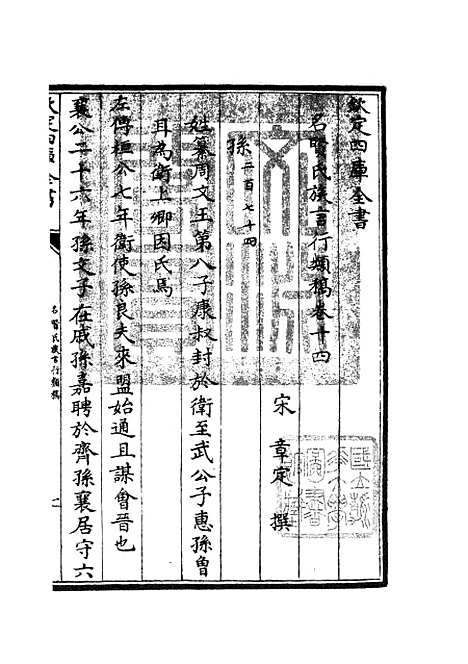 欽定四庫全書
名賢氏族言行類稿卷十四
宋 章定 撰
孫 二百七十四
姓纂周文王第八子康叔封於衛至武公子惠孫曾
耳為衛上卿因氏焉
左傳桓公七年衛使孫良夫來盟始通且謀會晉也
襄公二十六年孫文子在戚孫嘉聘於齊孫襄居守六
欽定四庫全書
名賢氏族言行類稿